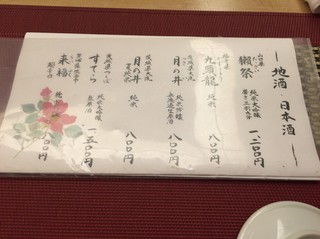 地酒・日本酒
山口県
獺祭 純米大吟醸 磨き三割九分 一、二〇〇円
福井県
九頭龍 純米 八〇〇円
茨城県大洗
月の井 純米吟醸 八〇〇円
茨城県大洗
月の井 純米 八〇〇円
茨城県つくば
すてら 純米大吟醸 一、五〇〇円
茨城県筑西市
来福 純 八〇〇円